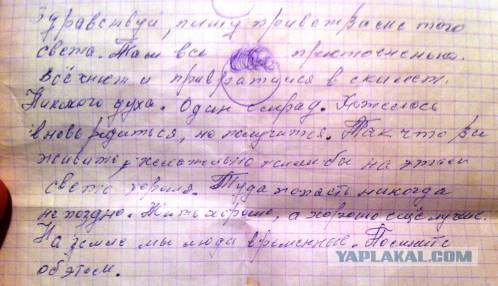 Здравствуй, пишу привет с того
света. Там все
всё гниют и превратился в скилет.
Никакого духа. Один смрад. Хотелось
вновь родиться, но получится. Так что вы
живите, желательно если бы на этом
свете хорошо. Туда попасть никогда
не поздно. Жить хорошо, а хорошо ещё лучше.
На земле мы люди временные. Помните
об этом.
YAPLAKAL.COM